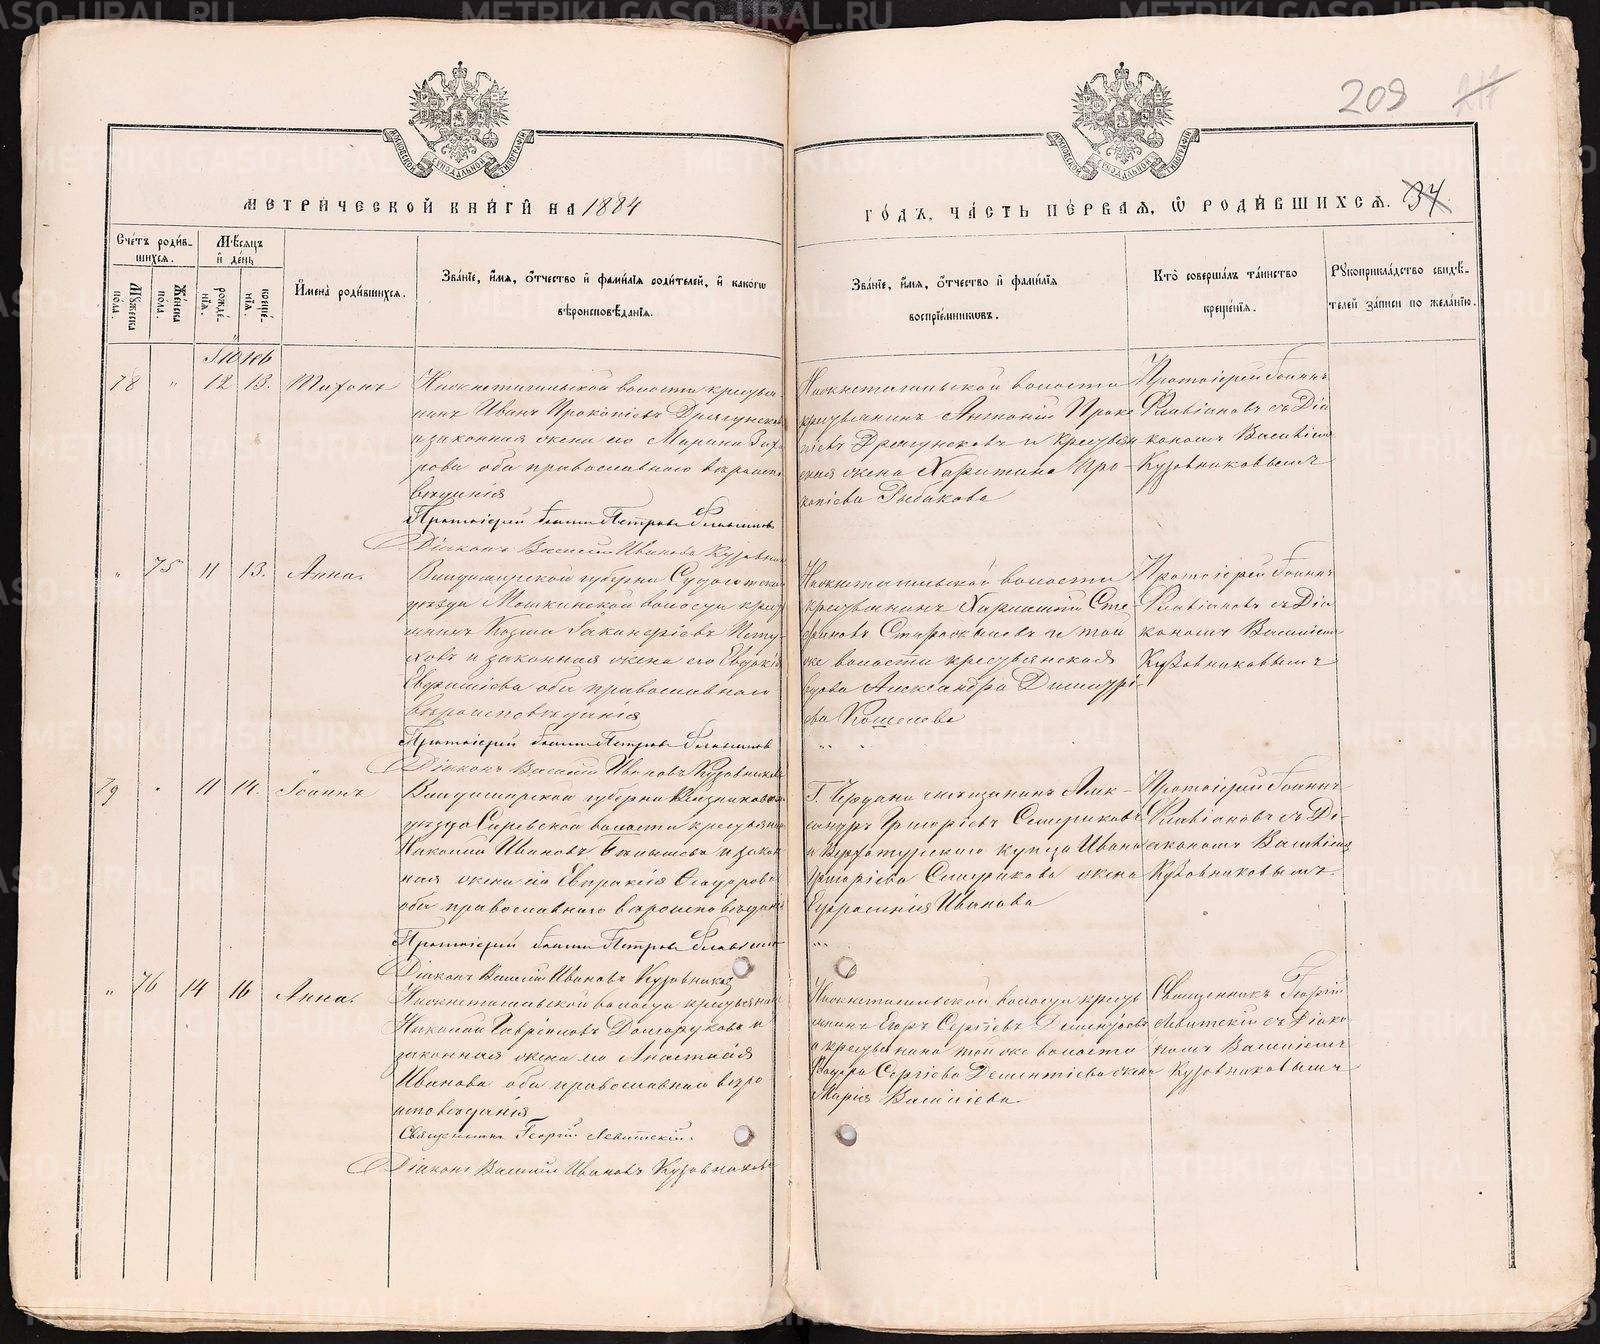 209
МЕТРИ́ЧЕСКОЙ КНИ́ГИ НА 1884
ГО́ДЪ, ЧА́СТЬ ПЕ́РВАЯ, Ѡ РОДИ́ВШИХСЯ. 34
Сче́тъ роди́в-
шихся.
Мѣ́сяцъ
и де́нь
Му́жеска
по́ла.
Же́нска
по́ла.
рожде́-
нїя.
креще́-
нїя.
И́мена роди́вшихся.
Зва́нїе, и́мя, о́тчество и фами́лїя роди́телей, и како́гѡ
вѣроисповѣ́данїя.
Зва́нїе, и́мя, о́тчество и фами́лїя
воспрїе́мниковъ.
Кто̀ соверша́лъ та́инство
креще́нїя.
Рꙋкоприкла́дство свидѣ́-
телей за́писи по жела́нїю.
78 " 12 13.
Нижнетагильской волости кресть
нинъ Иванъ Прокопіевъ Драгунско
и законная жена его Марина Заха
рова оба православнаго вѣроиспо
вѣданія
Протоіерей Іоаннъ Петровъ Флавіановъ
Діаконъ Василій Ивановъ Кузовник
Нижнетагильской волости
крестьянинъ Антоній Проко
піевъ Драгунсковъ и крестьян
ская жена Харитина Про-
копіева Рыбакова
Протоіерей Іоаннъ
Флавіановъ съ Діа
кономъ Василіем
Кузовниковымъ
" 75 11 13. Анна.
Владимирской губерніи Судоготска
уѣзда Мошкинской волости крест
нинъ Козма
ховъ и законная жена его Евдокія
Евфиміева оба православнаго
вѣроисповѣданія
Протоіерей Іоаннъ Петровъ Флавіановъ
Діаконъ Василій Ивановъ Кузовников
Нижнетагильской волости
крестьянинъ Харлампій Сте
фановъ и той
же волости крестьянская
вдова Александра Димитрі-
ева Кошелева
Протоіерей Іоаннъ
Флавіановъ съ Діа
кономъ Василіем
Кузовниковымъ
79 " 11 14. Іоаннъ
Владимирской губерніи Вязниковска
уѣзда Сарѣевской волости крестьянин
Николай Ивановъ и закон
ная жена его Евпраксія Ѳеодорова
оба православнаго вѣроисповѣдан
Протоіерей Іоаннъ Петровъ Флавіано
Діаконъ Василій Ивановъ Кузовников
Г. Чердыни мѣщанинъ Алек-
сандръ Григоріевъ Семериковъ
и Верхотурскаго купца Ивана
Григоріева Семерикова жена
Евфросинія Иванова
Протоіерей Іоаннъ
Флавіановъ съ Ді-
акономъ Василіем
Кузовниковымъ.
" 76 14 16 Анна.
Нижнетагильской волости крестьянин
Николай Гавріиловъ Долгоруковъ и
законная жена его Анастасія
Иванова оба православнаго вѣро
исповѣданія
Священникъ Георгій Левитскій.
Діаконъ Василій Ивановъ Кузовниковъ
Нижнетагильской волости кресть
янинъ Егоръ Сергіевъ Дементіевъ
и крестьянина той же волости
Ѳедора Сергіева Дементіева жена
Марія Василіева
Священникъ Георгій
Левитскій съ Діако-
номъ Василіемъ
Кузовниковымъ
METRIKI.GASO-URAL.RU